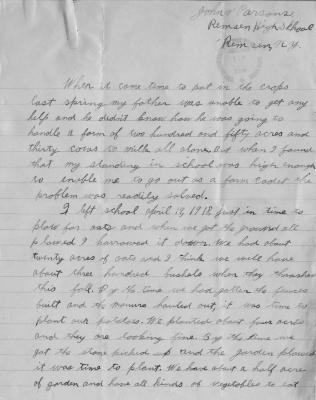 John Parsons
Remsen High School
Remsen, N.Y.
When it came time to put in the crops
last spring my father was unable to get any
help and he didn't know how he was going to
handle a farm of two hundred and fifty acres and
thirty cows to milk all alone. But when I found
that my standing in school was high enough
to enible me to go out as a farm cadet the
problem was readily solved.
I left school April 19, 1918 just in time to
plow for oats and when we got the ground all
plowed I harrowed it down. We had about
twenty acres of oats and I think we will have
about three hundred bushels when they thrashed
this fall. By the time we had gotten the fences
built and the manure hauled out, it was time to
plant our potatoes. We planted about four acres
and they are looking fine. By the time we
got the stone picked up and the garden plowed
it was time to plant. We have about a half acre
of garden and have all kinds of vegetables to eat